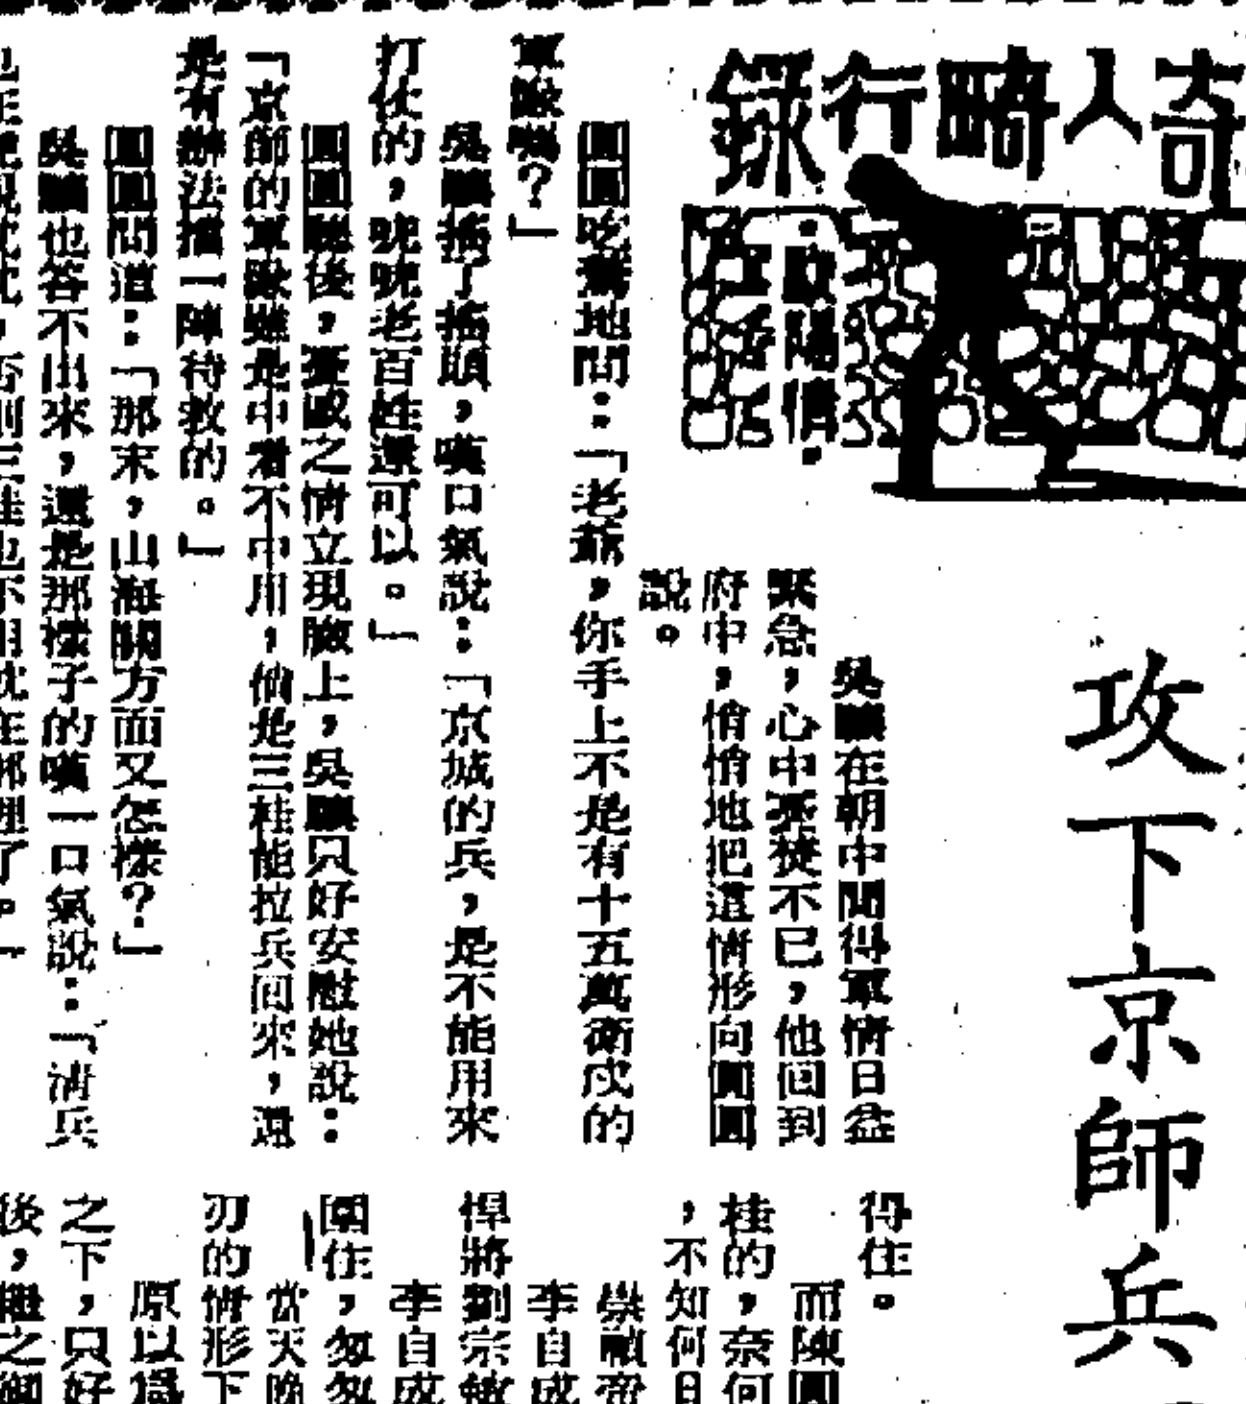 奇人畸行錄
歐陽倩
攻下京師兵
吳驤在朝中聞得軍情日益
緊急，心中憂焚不已，他回到
府中，悄悄地把這情形向圓圓
說。
圓圓吃驚地問：「老爺，你手上不是有十五萬衛戍的
軍隊嗎？」
吳驤搖了搖頭，嘆口氣說：「京城的兵，是不能用來
打仗的，唬唬老百姓還可以。」
圓圓聽後，憂戚之情立現臉上，吳驤只好安慰她說：
「京師的軍隊雖是中看不中用，倘是三桂能拉兵回來，還
是有辦法擋一陣待救的。」
圓圓問道：「那末，山海關方面又怎樣？」
吳驤也答不出來，還是那樣子的嘆一口氣說：「清兵
得住。
而陳圓
桂的，奈何
，不知何日
崇禎帝
李自成
悍將劉宗敏
李自成
圍住，匆匆
當天晚
刃的情形下
原以爲
之下，只好
後，繼之